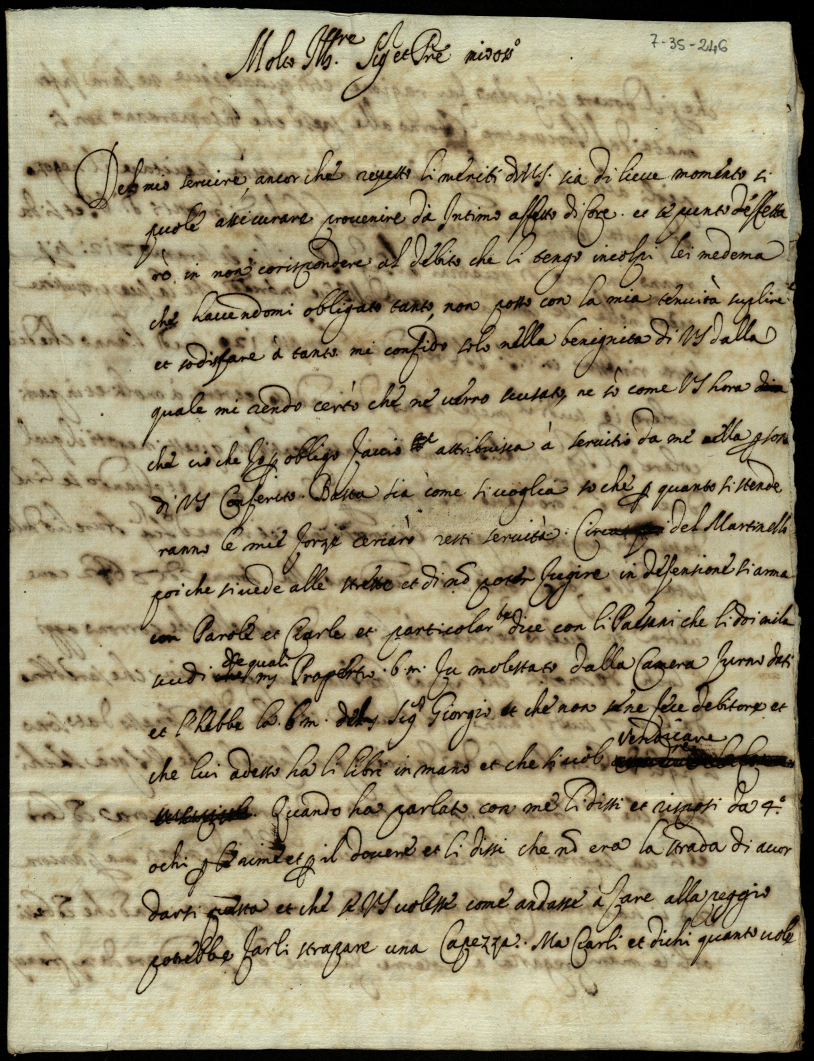 7-35-246
Molto Ill.re Sig et Prē mio oss.o
Del mio servire, ancor che rispetto li meriti di VS. sia di lieve momento si
puole assicurare provenire da Intimo affetto di Core. et se punto difetta
rò in non corrispondere al debito che li tengo incolpi lei medema
che havendomi obligato tanto, non posso con la mia tenuità suplire
et sodisfare à tanto mi confido solo nella benignita di VS dalla
quale mi rendo certo che ne verro scusato, ne sò come VS hora
che ciò che obligo faccio attribuisca à servitio da me nella
di VS Conferito. Basta sia come si voglia so che quanto si stende
ranno le mie forze cercarò resti servita. del Martinello
poi che si vede alle strette et di nō poter fugire in defensione si arma
con Parole et Ciarle et particolar dice con li Paesani che li doi mila
scudi de quali Properzio. b.m. fu molestato dalla Camera furno dati
et l'hebbe la b.m. del Sig.r Giorgio et che non se ne fece debitore et
che lui adesso ha li libri in mano et che si vol vendicare
Quando ha parlato con me li dissi et risposi da 4.o
ochi et il dovere et li dissi che nō era la strada di accor
darsi questa et che se VS volesse come andasse à fare alla peggio
potrebbe farli strapare una Capezza. Ma Ciarli et dichi quanto vole